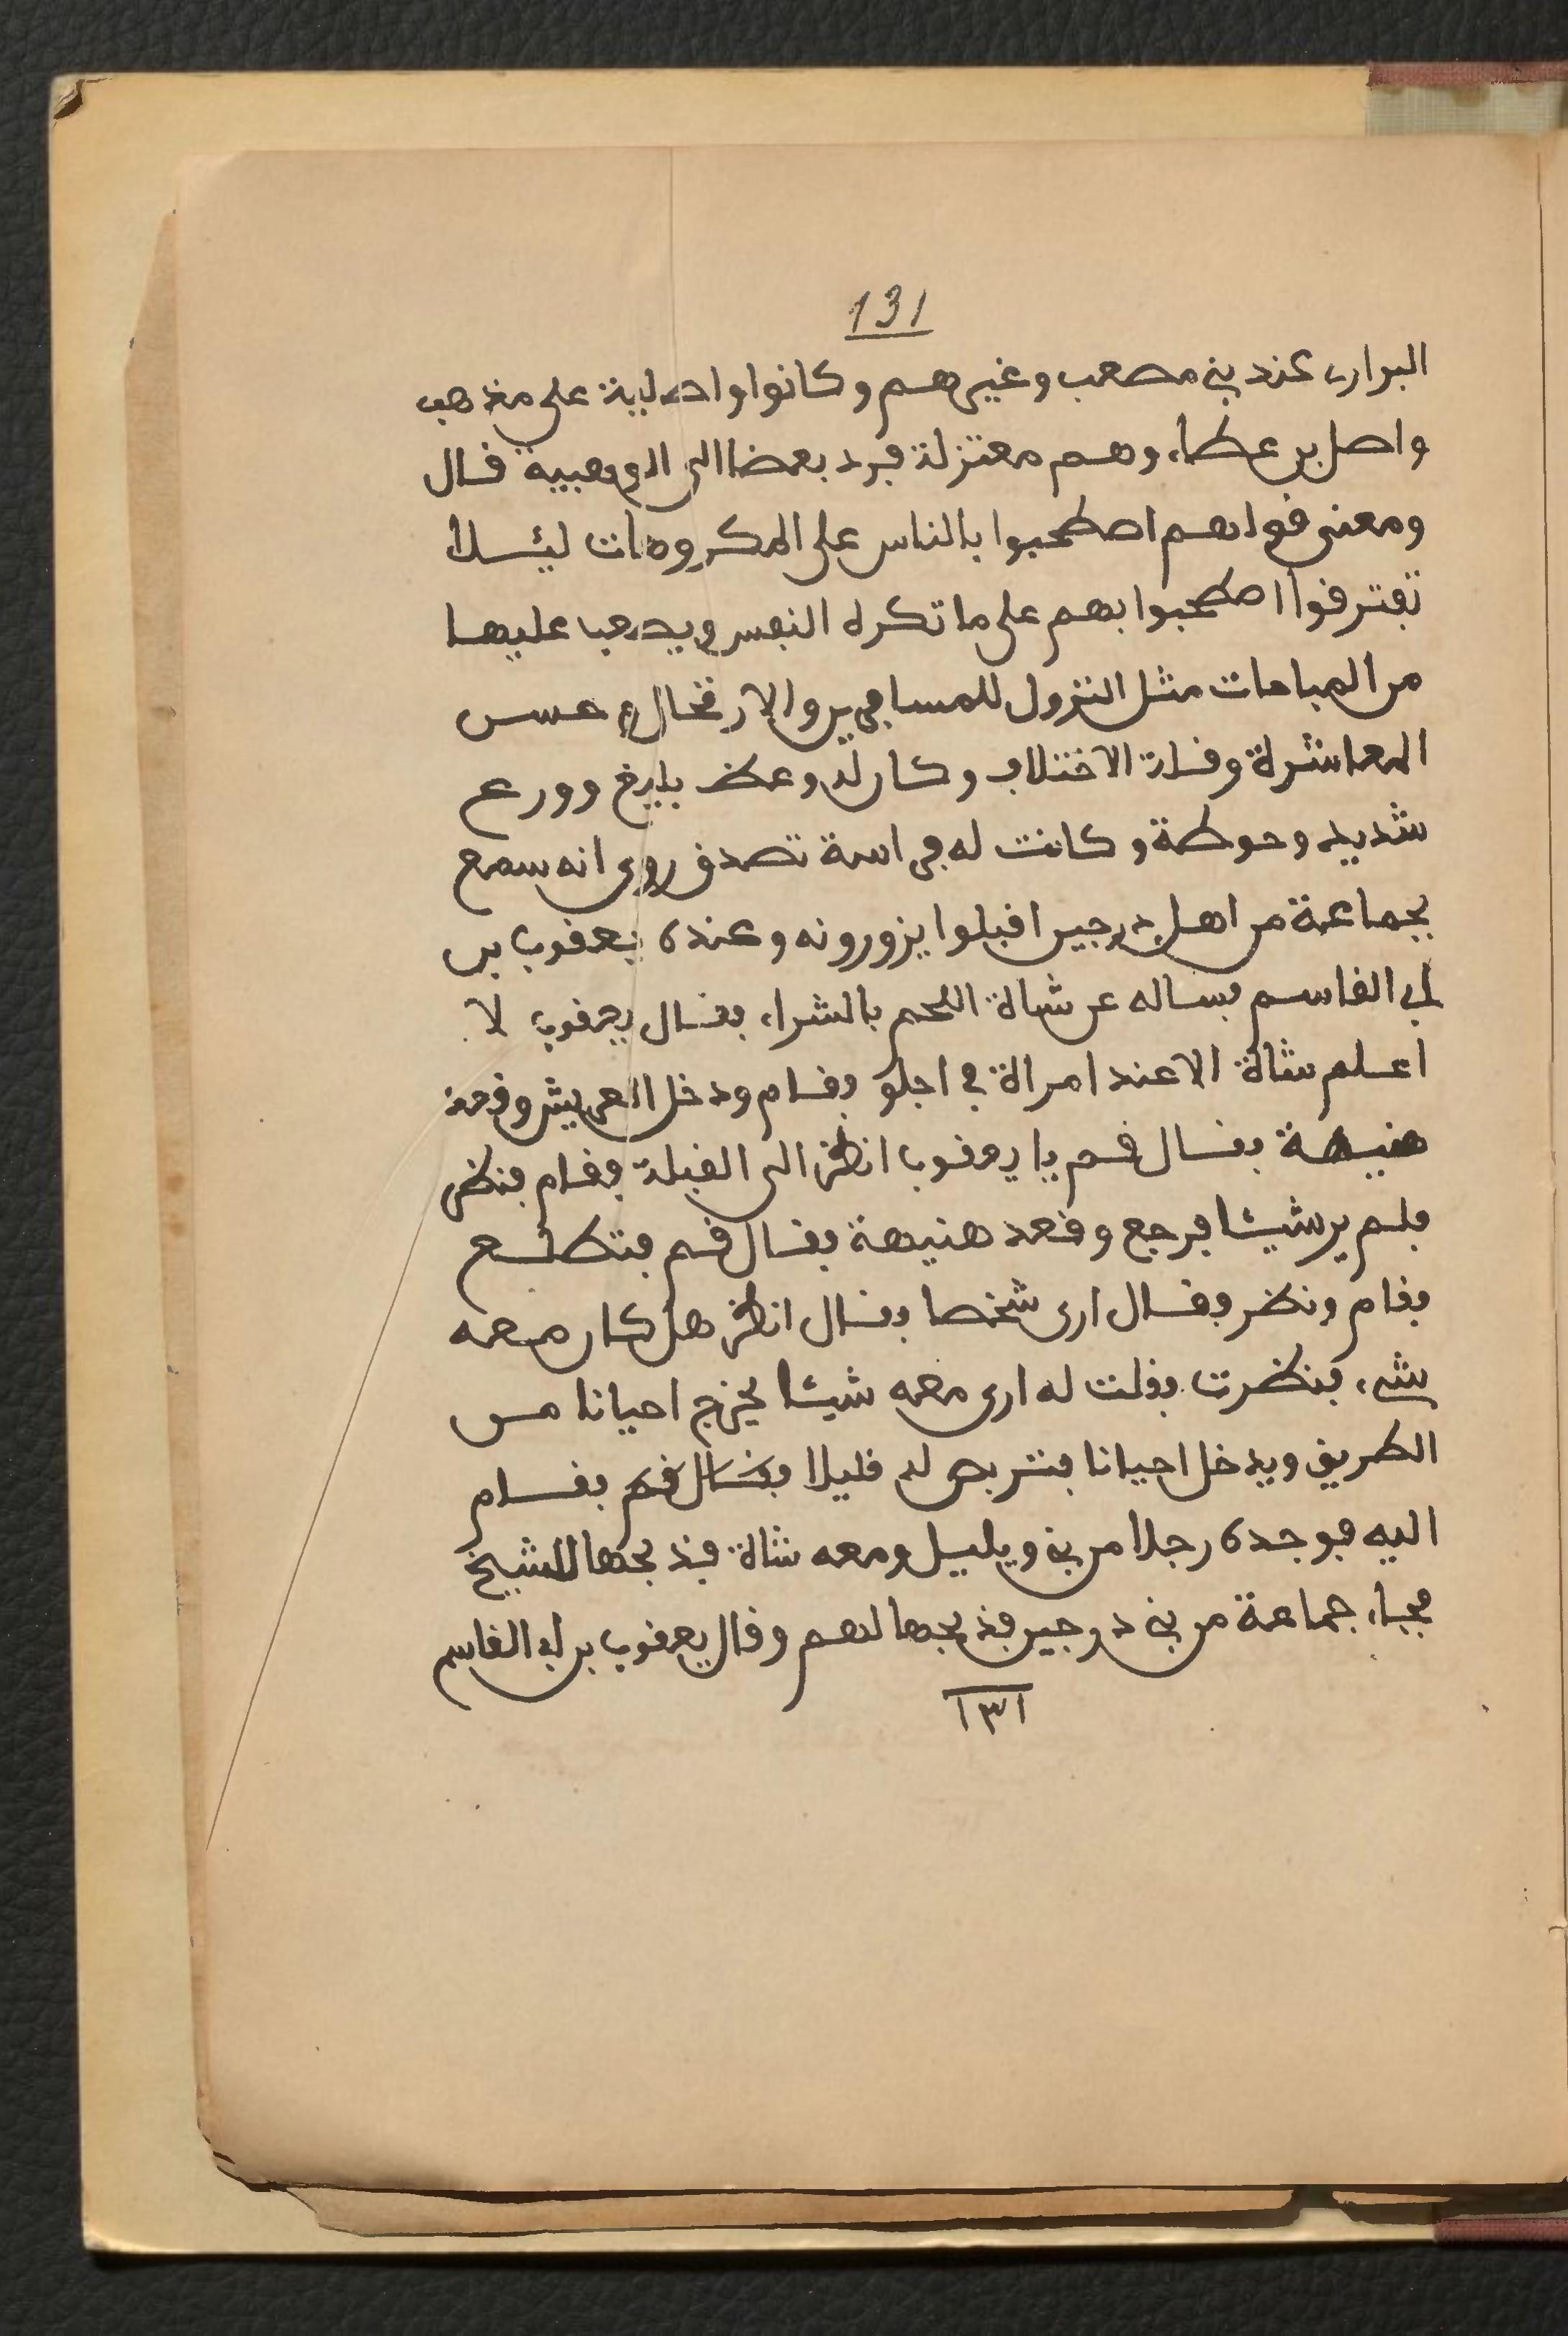 131
البرارى عند بني مصعب وغيرهم وكانوا واصلية على مذهب
واصل بن عطاء وهم معتزلة فرد بعضا الى الوهبية قال
ومعنى قولهم اصطحبوا بالناس على المكروهات ليسلا
تفترقوا اصطحبوا بهم على ما تكره النفس ويصعب عليها
من المباحات مثل النزول للمسافرين والارتحال وحسن
المعاشرة وقلة الاختلاف وكان له وعظ بليغ وورع
شديد وحوطة وكانت له فراسة تصدق روي انه سمع
بجماعة من اهل درجين اقبلوا يزورونه وعنده يعقوب بن
ابي القاسم فساله عن شاة اللحم بالشراء فقال يعقوب لا
اعلم شاة الا عند امراة في اجلو فقام ودخل العريش وقعد
هنيهة فقال قم يا يعقوب انظر الى القبلة فقام فنظر
فلم ير شيئا فرجع وقعد هنيهة فقال قم فتطلع
فقام ونظر وقال ارى شخصا فقال انظر هل كان معه
شيء فنظرت فقلت له ارى معه شيئا يخرج احيانا من
الطريق ويدخل احيانا فتربص له قليلا فقال قم فقام
اليه فوجده رجلا من بني ويليل ومعه شاة فذبحها للشيخ
فجاء جماعة من بني درجين فذبحها لهم وقال يعقوب بن ابي القاسم
١٣١